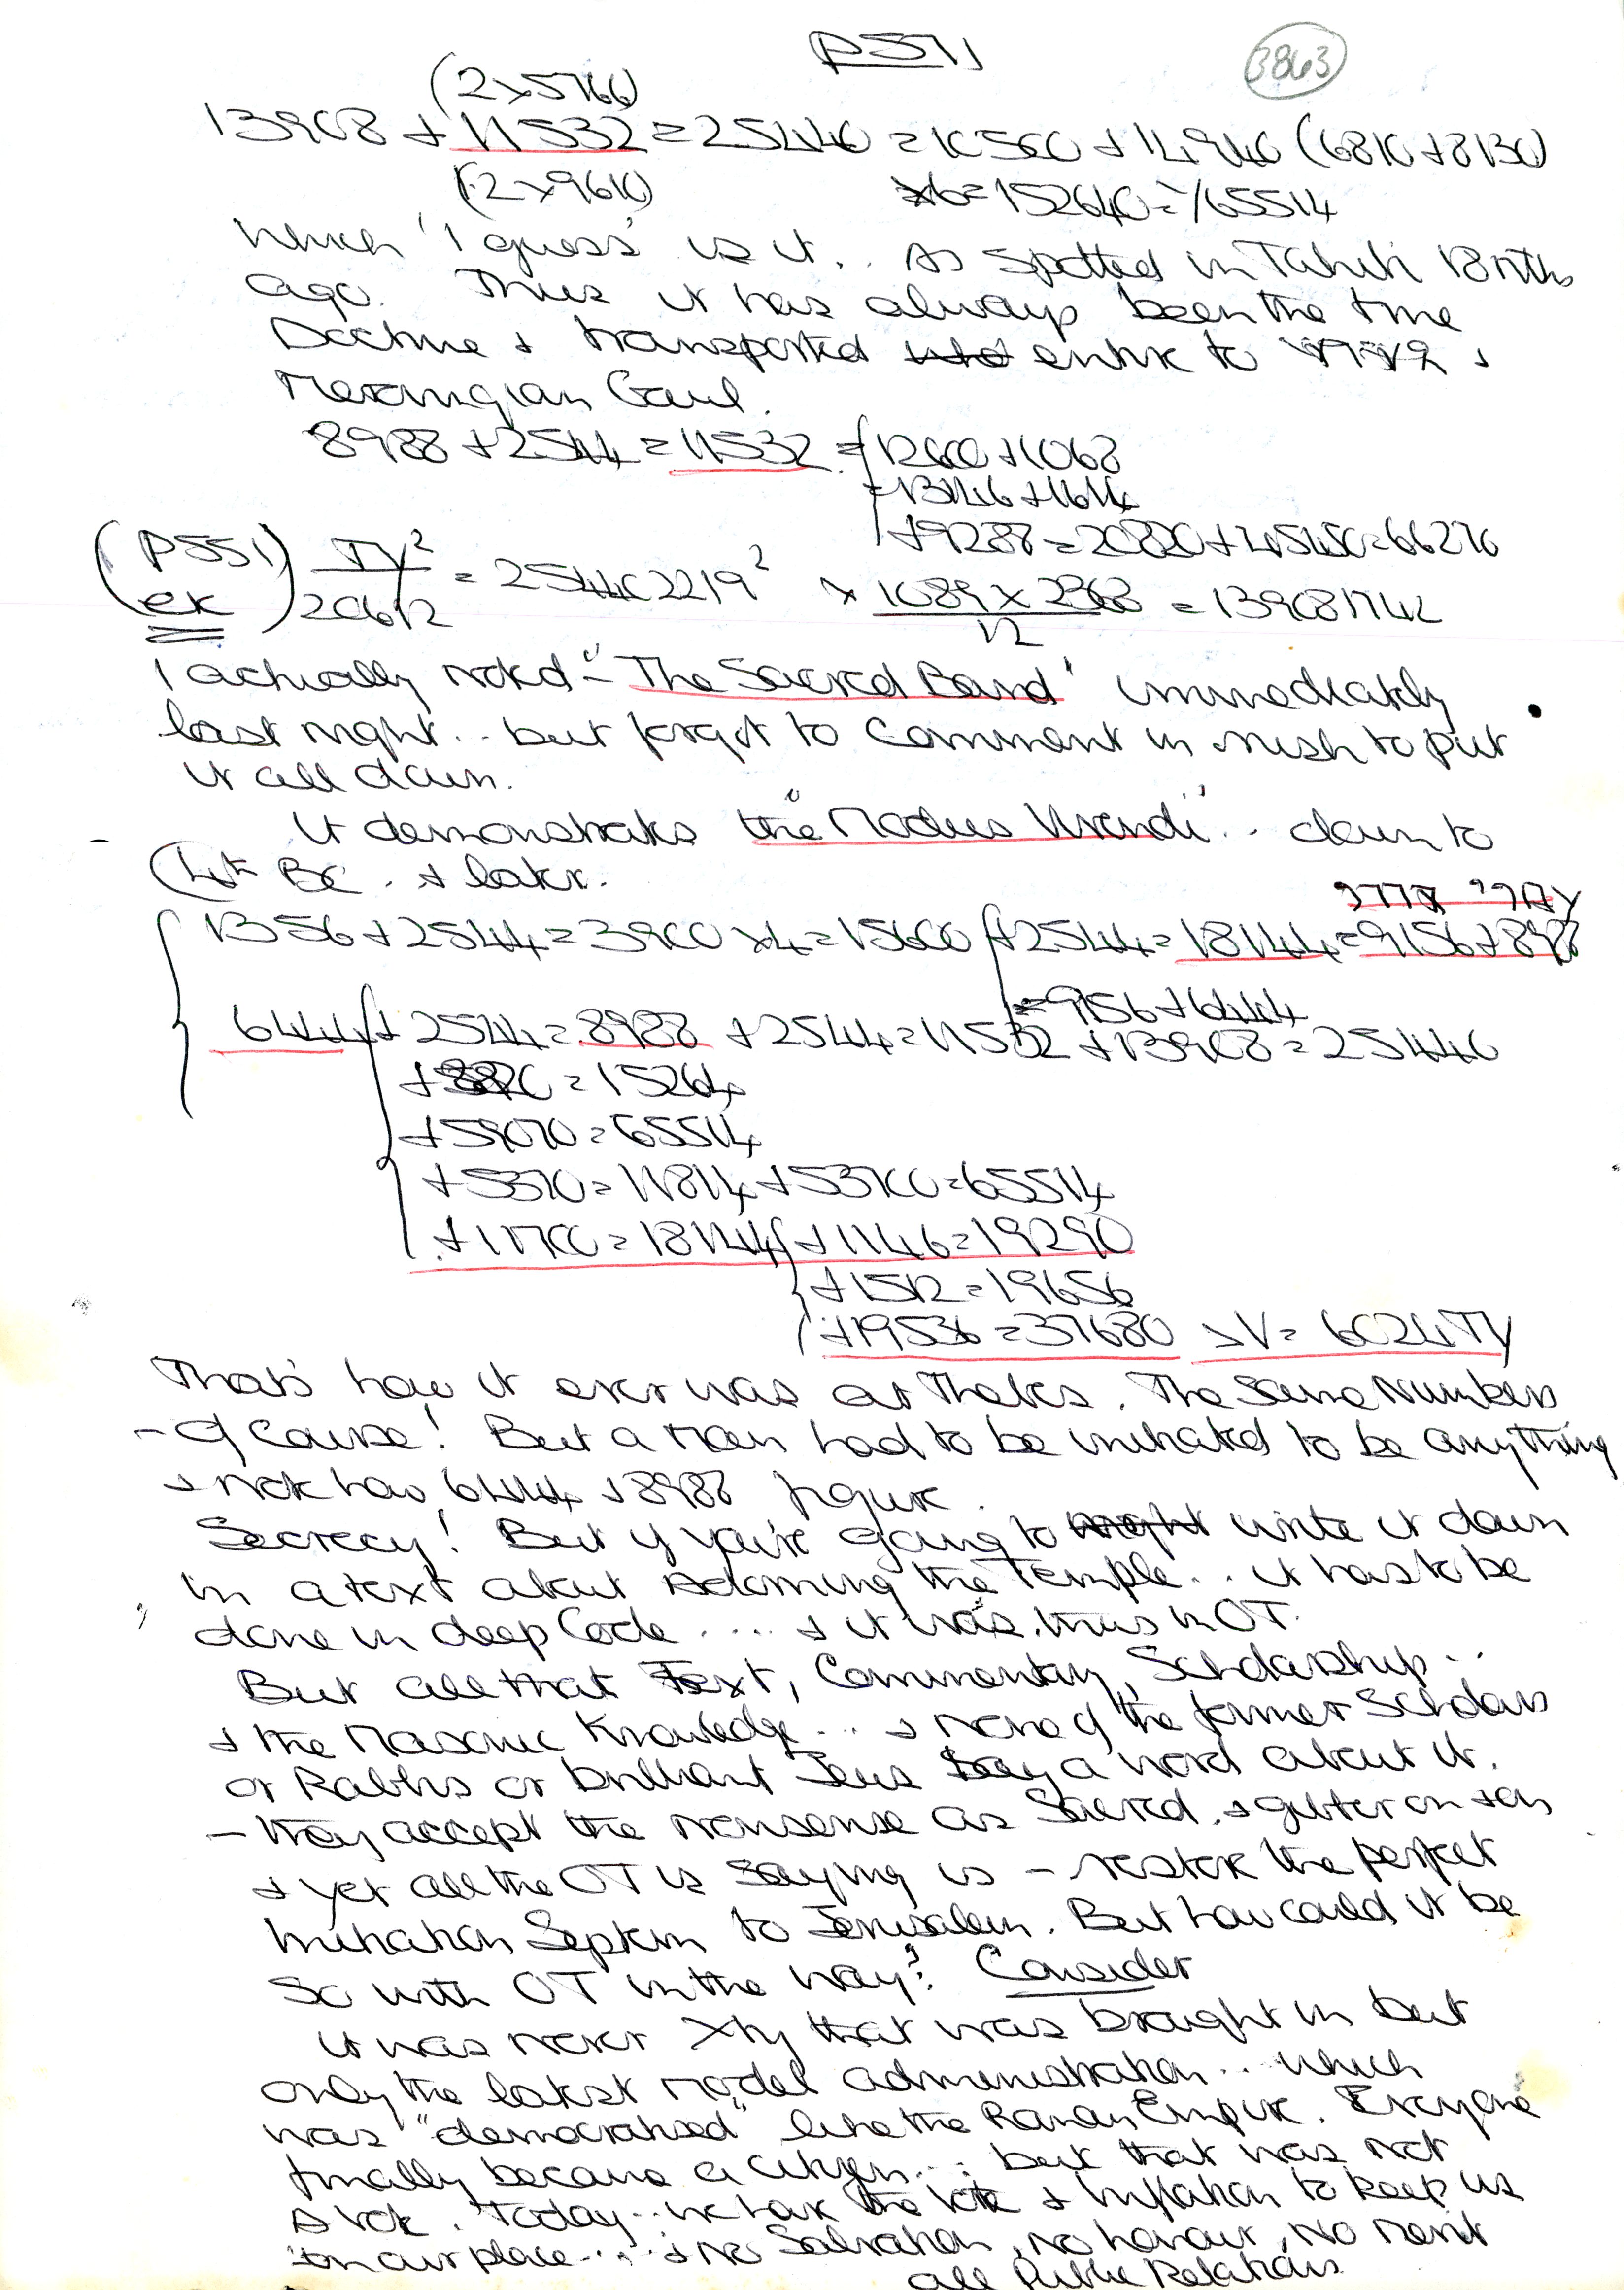 P571
3863
(2x5766)
13908 + 11532 = 25440 = 10500 + 14940 (6810 + 8130)
(12x9610) x6 = 152640 = 1/65514
Which 'I guess' is it.. As spotted in Tahiti 18 mths
ago. Thus it has always been the true
Doctrine & transported entire to &
Merovingian Gaul.
8988 + 2544 = 11532 = 1260 + 1068
= 13146 + 1614
+ 9288 = 20820 + 45450 = 66270
(P551) TY² = 254402219² x 1089 x 2368 = 139081742
ex 20612 12
I actually noted - "The Sacred Band" immediately
last night .. but forgot to comment in rush to put
it all down.
It demonstrates the "Modus Vivendi" .. down to
(4th BC. & later.
1356 + 2544 = 3900 x 4 = 15600 + 2544 = 18144 = 9156 + 8988
= 9156 + 6444
6444 + 2544 = 8988 + 2544 = 11532 + 13908 = 25440
+ 8820 = 15264
+ 59070 = 65514
+ 5370 = 11814 + 53700 = 65514
+ 11700 = 18144 + 1146 = 19290
+ 1512 = 19656
+ 19536 = 37680 > V = 6024 TY
That's how it ever was at Thebes. The Same Numbers
- Of Course! But a man had to be initiated to be anything
& note how 6444 & 8988 figure.
Secrecy! But if you're going to write it down
in a text about Adorning the Temple .. it has to be
done in deep Code .... & it was. thus in OT.
But all that Text, Commentary, Scholarship ..
& the Masonic Knowledge ... & none of the former Scholars
or Rabbis or brilliant Jews say a word about it.
- they accept the nonsense as Sacred. &
& yet all the OT is saying is - restore the perfect
Initiation System to Jerusalem. But how could it be
so with OT in the way? Consider
It was never Xty that was brought in but
only the latest model administration .. which
was "democratised" like the Roman Empire. Everyone
finally became a citizen ... but that was not
a vote. Today .. we have the vote & inflation to keep us
in our place .... & no Salvation, no honour, No merit
all Public Relations